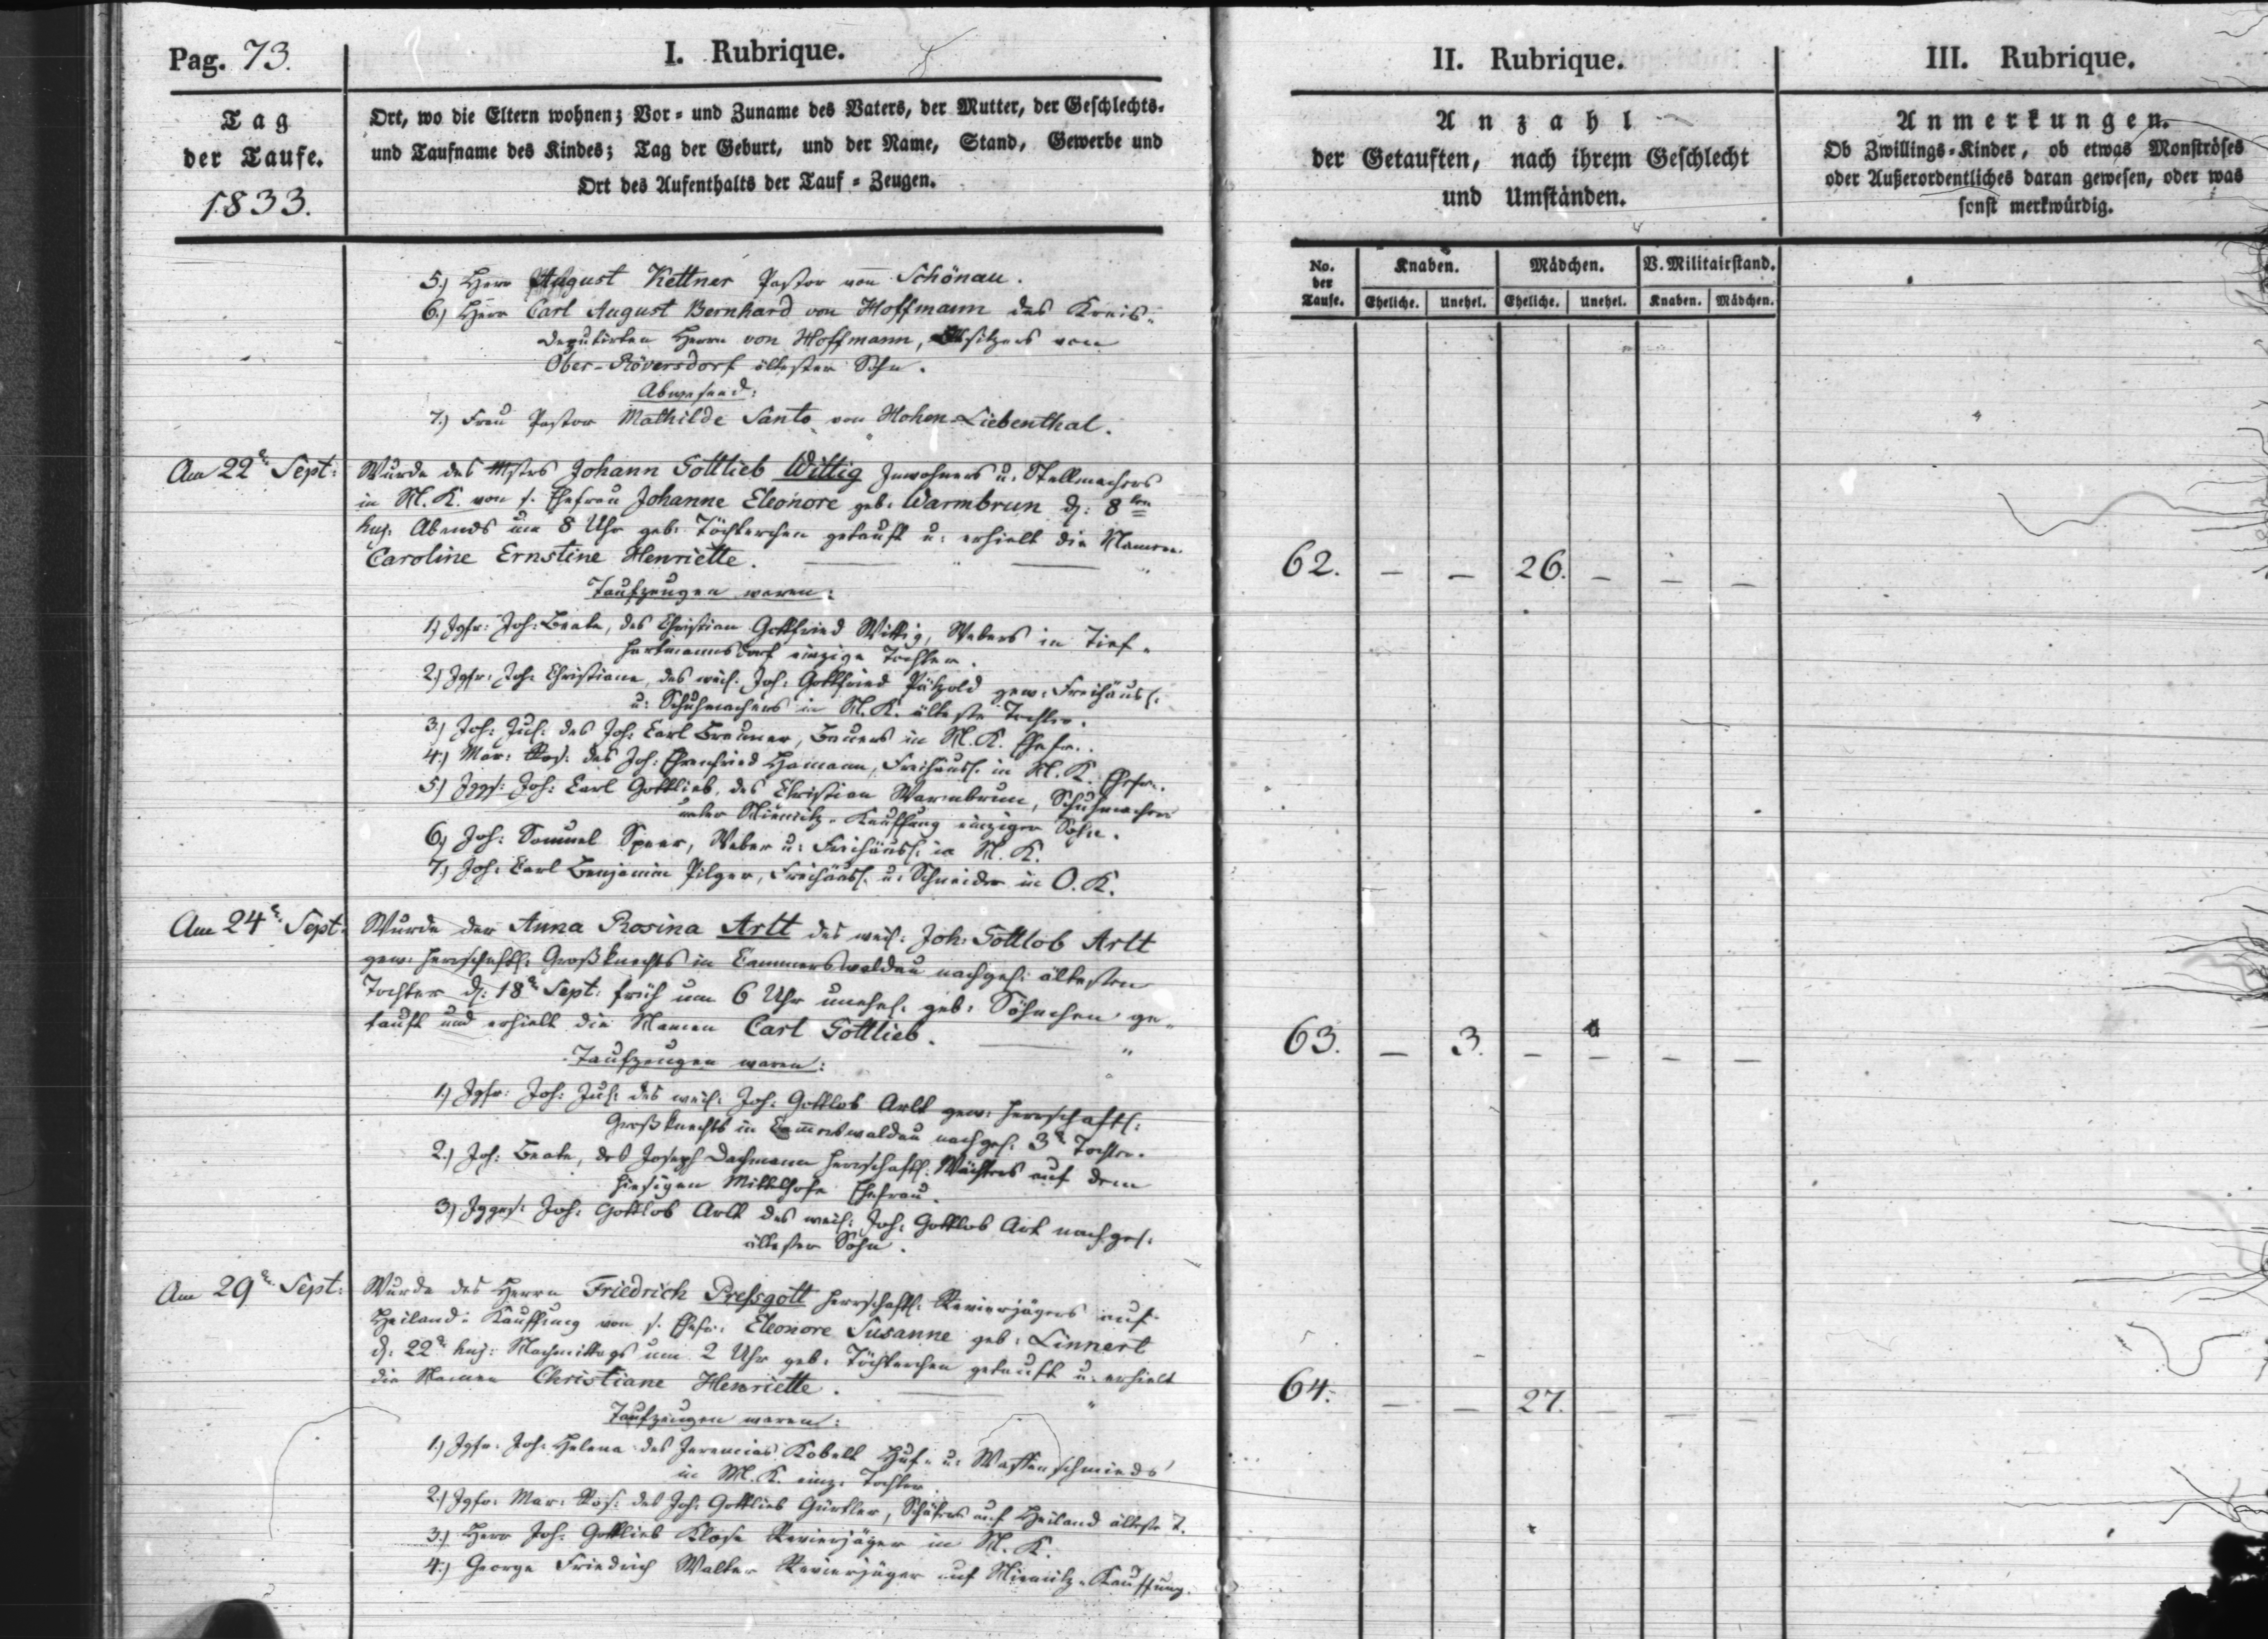 Pag. 73.
I. Rubrique.
II. Rubrique.
III. Rubrique.
Tag
der Taufe.
1833.
Ort, wo die Eltern wohnen; Vor- und Zuname des Vaters, der Mutter, der Geschlechts-
und Taufname des Kindes; Tag der Geburt, und der Name, Stand, Gewerbe und
Ort des Aufenthalts der Tauf-Zeugen.
Anzahl
der Getauften, nach ihrem Geschlecht
und Umständen.
Anmerkungen.
Ob Zwillings-Kinder, ob etwas Monströses
oder Außerordentliches daran gewesen, oder was
sonst merkwürdig.
No. der Taufe.
Knaben.
Mädchen.
V. Militairstand.
Eheliche. Unehel. Eheliche. Unehel. Knaben. Mädchen.
5.) Herr August Kettner Pastor von Schönau.
6.) Herr Carl August Bernhard von Hoffmann des Kreis-
Deputirten Herrn von Hoffmann, Besitzers von
Ober-Röversdorf ältester Sohn.
Abwesend:
7.) Frau Pastor Mathilde Santo von Hohen-Liebenthal.
Am 22n Sept: Wurde des Mstrs Johann Gottlieb Wittig Inwohners u: Stellmachers
in N. K. von s. Ehefrau Johanne Eleonore geb: Warmbrun d: 8ten
huj: Abends um 8 Uhr geb: Töchterchen getauft u: erhielt die Namen
Caroline Ernstine Henriette.
62. — — 26. — — —
Taufzeugen waren:
1.) Jgfr: Joh: Beate, des Christian Gottfried Wittig, Webers in Tief-
hartmannsdorf einzige Tochter.
2.) Jgfr: Joh: Christiane, des weil: Joh: Gottfried Pätzold gew: Freihäusl:
u: Schuhmachers in N. K. älteste Tochter.
3.) Joh: Jul: des Joh: Carl Bräuner, Bauers in N. K. Ehefr:
4.) Mar: Ros: des Joh: Ehrenfried Hamann, Freihäusl: in N. K. Ehefr:
5.) Jggs: Joh: Carl Gottlieb, des Christian Warmbrun, Schuhmachers
unter Niemitz-Kauffung einziger Sohn.
6.) Joh: Samuel Speer, Weber u: Freihäusl: in N. K.
7.) Joh: Carl Benjamin Pilger, Freihäusl: u: Schneider in O. K.
Am 24n Sept: Wurde der Anna Rosina Artt des weil: Joh: Gottlob Artt
gew: herrschaftl: Großknechts in Cammerswaldau nachgel: ältesten
Tochter d: 18n Sept: früh um 6 Uhr unehel: geb: Söhnchen ge-
tauft und erhielt die Namen Carl Gottlieb.
63. — 3. — — — —
Taufzeugen waren:
1.) Jgfr: Joh: Jul: des weil: Joh: Gottlob Arlt gew: herrschaftl:
Großknechts in Cammerswaldau nachgel: 3te Tochter.
2.) Joh: Beate, des Joseph Dachmann herrschaftl: Wächters auf dem
hiesigen Mittelhofe Ehefrau.
3.) Jgges: Joh: Gottlob Arlt des weil: Joh: Gottlob Arlt nachgel:
ältester Sohn.
Am 29n Sept: Wurde des Herrn Friedrich Pressgott herrschaftl: Revierjägers auf
Heiland-Kauffung von s. Ehefr: Eleonore Susanne geb: Linnert
d: 22n huj: Nachmittags um 2 Uhr geb: Töchterchen getauft u: erhielt
die Namen Christiane Henriette.
64. — — 27. — — —
Taufzeugen waren:
1.) Jgfr: Joh: Helena des Jeremias Kobelt Huf- u: Waffenschmieds
in M. K. einz: Tochter.
2.) Jgfr: Mar: Ros: des Joh: Gottlieb Gürtler, Schäfers auf Heiland älteste T.
3.) Herr Joh: Gottlieb Klose Revierjäger in N. K.
4.) George Friedrich Walter Revierjäger auf Niemitz-Kauffung.